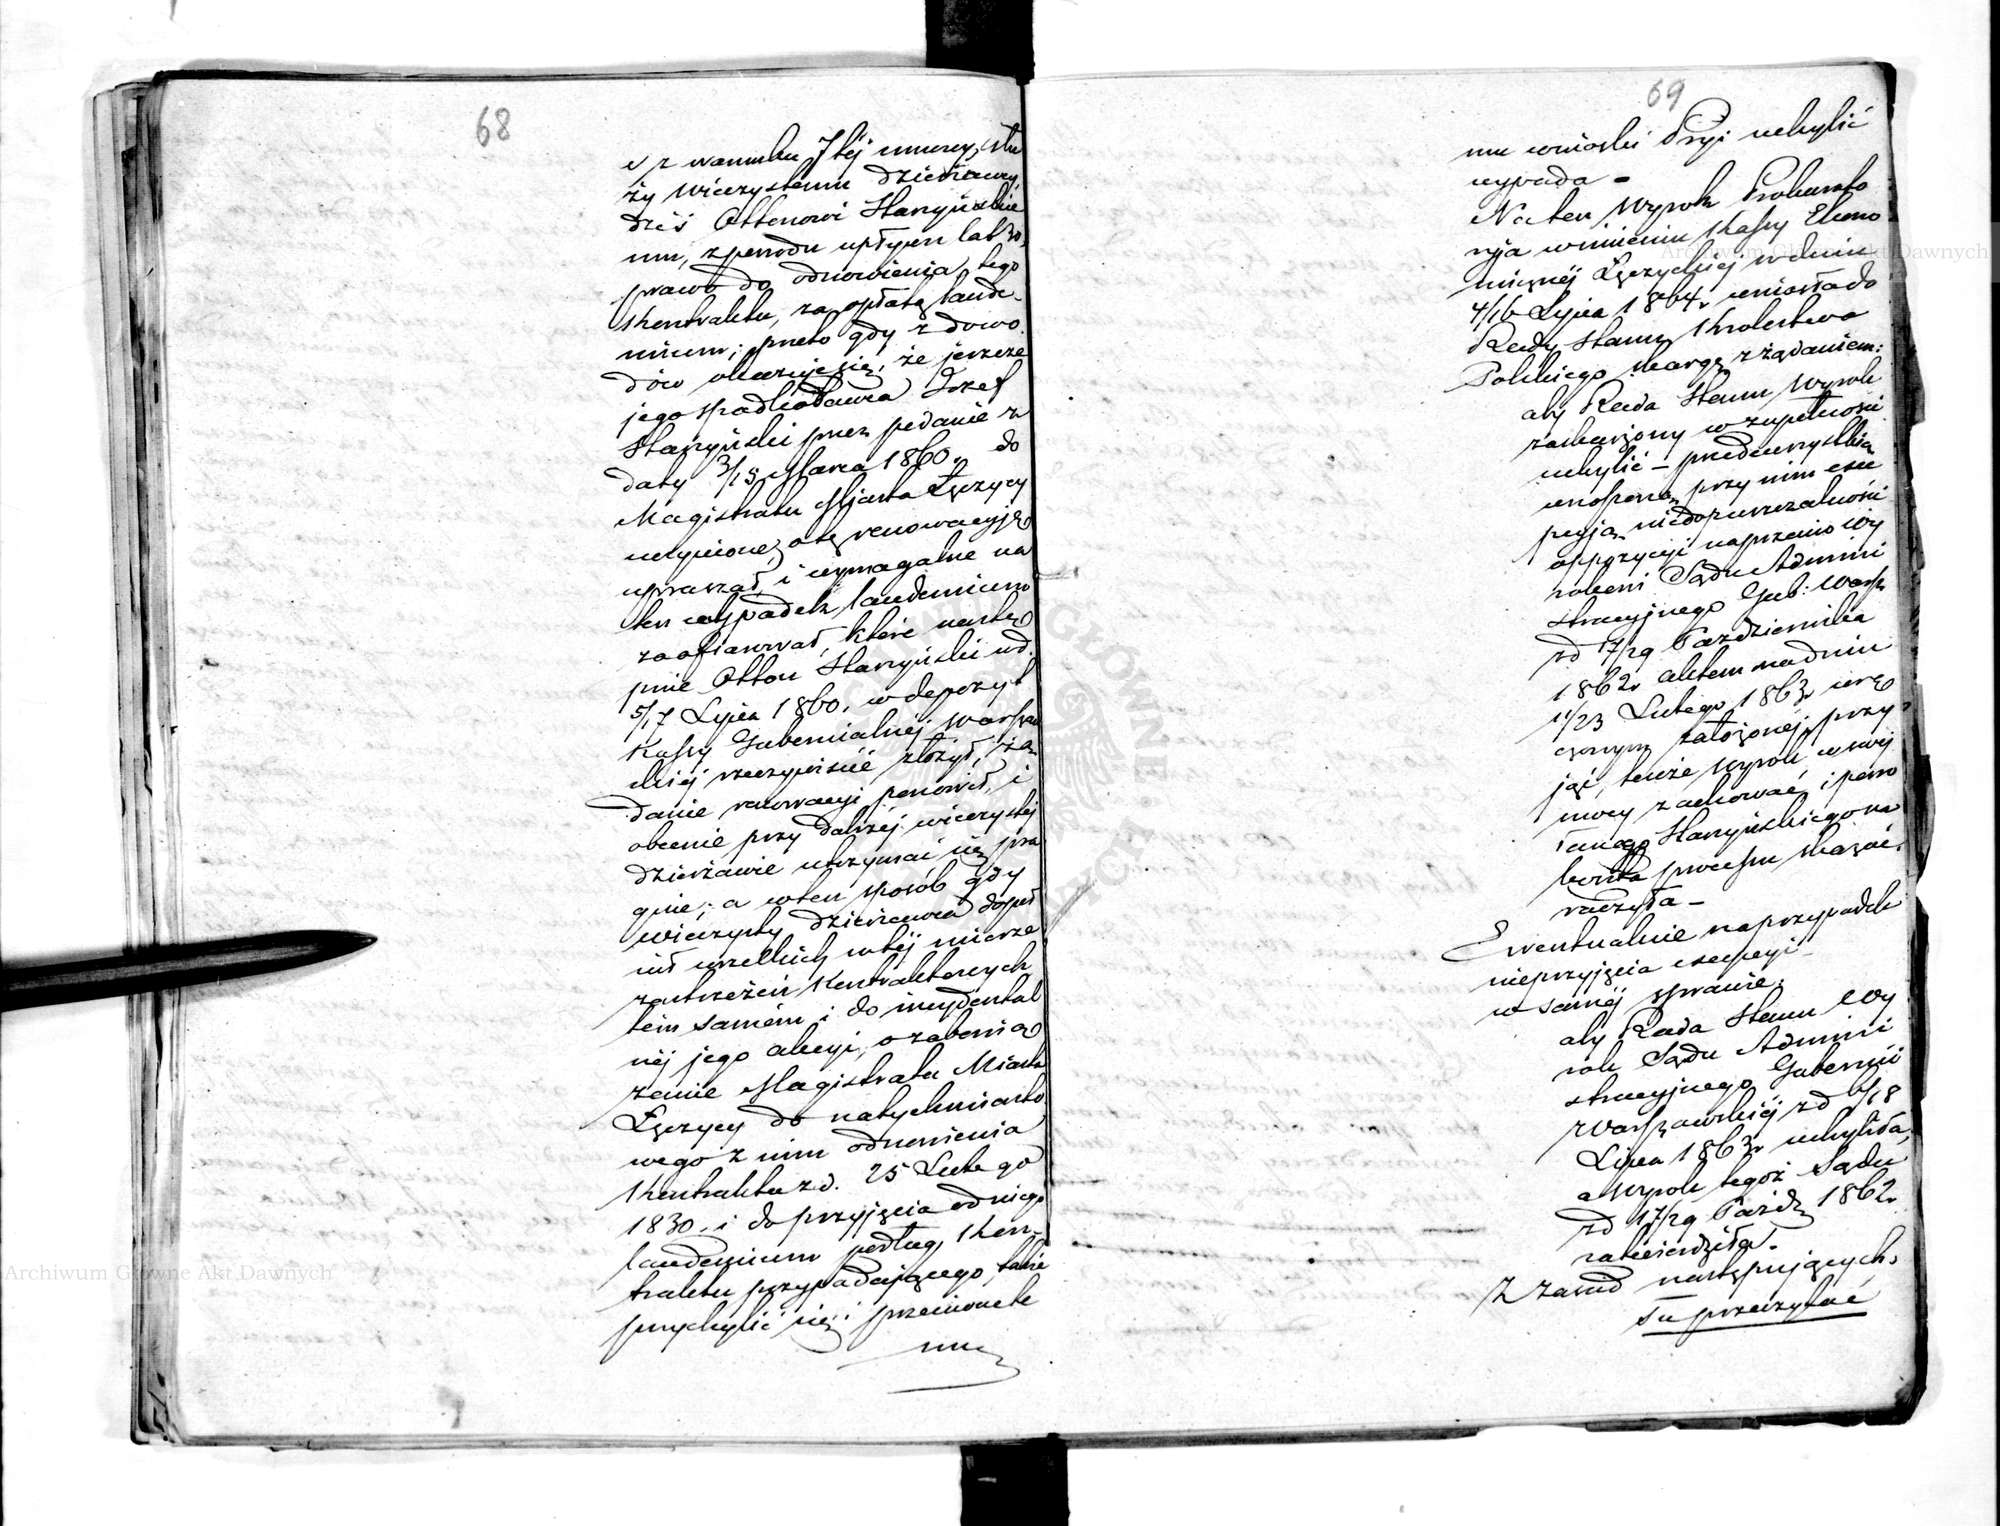 68
i z warunku 7 téj umowy, słu
ży wieczystemu dzierżawcy
dziś Ottonowi Starzyńskie
mu, z powodu upływu lat 30,
prawo do odnowienia tego
kontraktu, za opłatą laude-
mium; przeto gdy z dowo
dów okazuje się, że jeszcze
jego spadkodawca Józef
Starzyński przez podanie z
daty 3/15 Marca 1860 r. do
Magistratu Miasta Łęczycy
uczynione, o tę renowacyję
upraszał, i wymagalne na
ten wypadek laudemium
zaofiarował, które nastę
pnie Otton Starzyński w d.
5/17 Lipca 1860. w depozyt
Kassy Gubernialnéj Warszaw
skiej rzeczywiście złożył, żą
danie renowacyi ponowił, i
obecnie przy dalszéj wieczystéj
dzierżawie utrzymać się pra
gnie; a w ten sposób gdy
wieczysty dzierżawca dopeł
nił wszelkich w téj mierze
zastrzeżeń kontraktowych
tém samém i do incydental
néj jego akcyi, o zobowią
zanie Magistratu Miasta
Łęczycy do natychmiasto
wego z nim odnowienia
Kontraktu z d. 25 Lutego
1830. i do przyjęcia od niego
laudemium podług kon-
traktu przypadającego, także
przychylić się i przeciwnete
mu
69
mu wnioski Przyi uchylić
wypada -
Na ten Wyrok Prokurato
ryja w imieniu Kassy Ekono
micznéj Łęczyckiej w dniu
4/16 Lipca 1864 r. wniosła do
Rady Stanu Królestwa
Polskiego skargę z żądaniem:
aby Rada Stanu Wyrok
zaskarżony w zupełności
uchylić - przedewszystkiem
wnoszona przy nim exce
pcyja niedopuszczalności
oppozycyi naprzeciw Wy
rokowi Sądu Admini
stracyjnego Gub: Warsz.
z d 17/29 Października
1862 r aktem na dniu
11/23 Lutego 1863 r wrę
czonym założonéj, przy
jąć, tenże Wyrok w swéj
mocy zachować i pozwa
łanego Starzyńskiego na
koszta processu skazać
raczyła -
Ewentualnie na przypadek
nieprzyjęcia excepcyi -
w saméj sprawie:
aby Rada Stanu Wy
rok Sądu Admini
stracyjnego Gubernii
Warszawskiéj z d 6/18
Lipca 1863 r uchyliła,
a Wyrok tegoż Sądu
z d 17/29 Paźdz. 1862 r
zatwierdziła -
Z zasad następujących:
Tu przeczytać
Archiwum Główne Akt Dawnych
Archiwum Główne Akt Dawnych